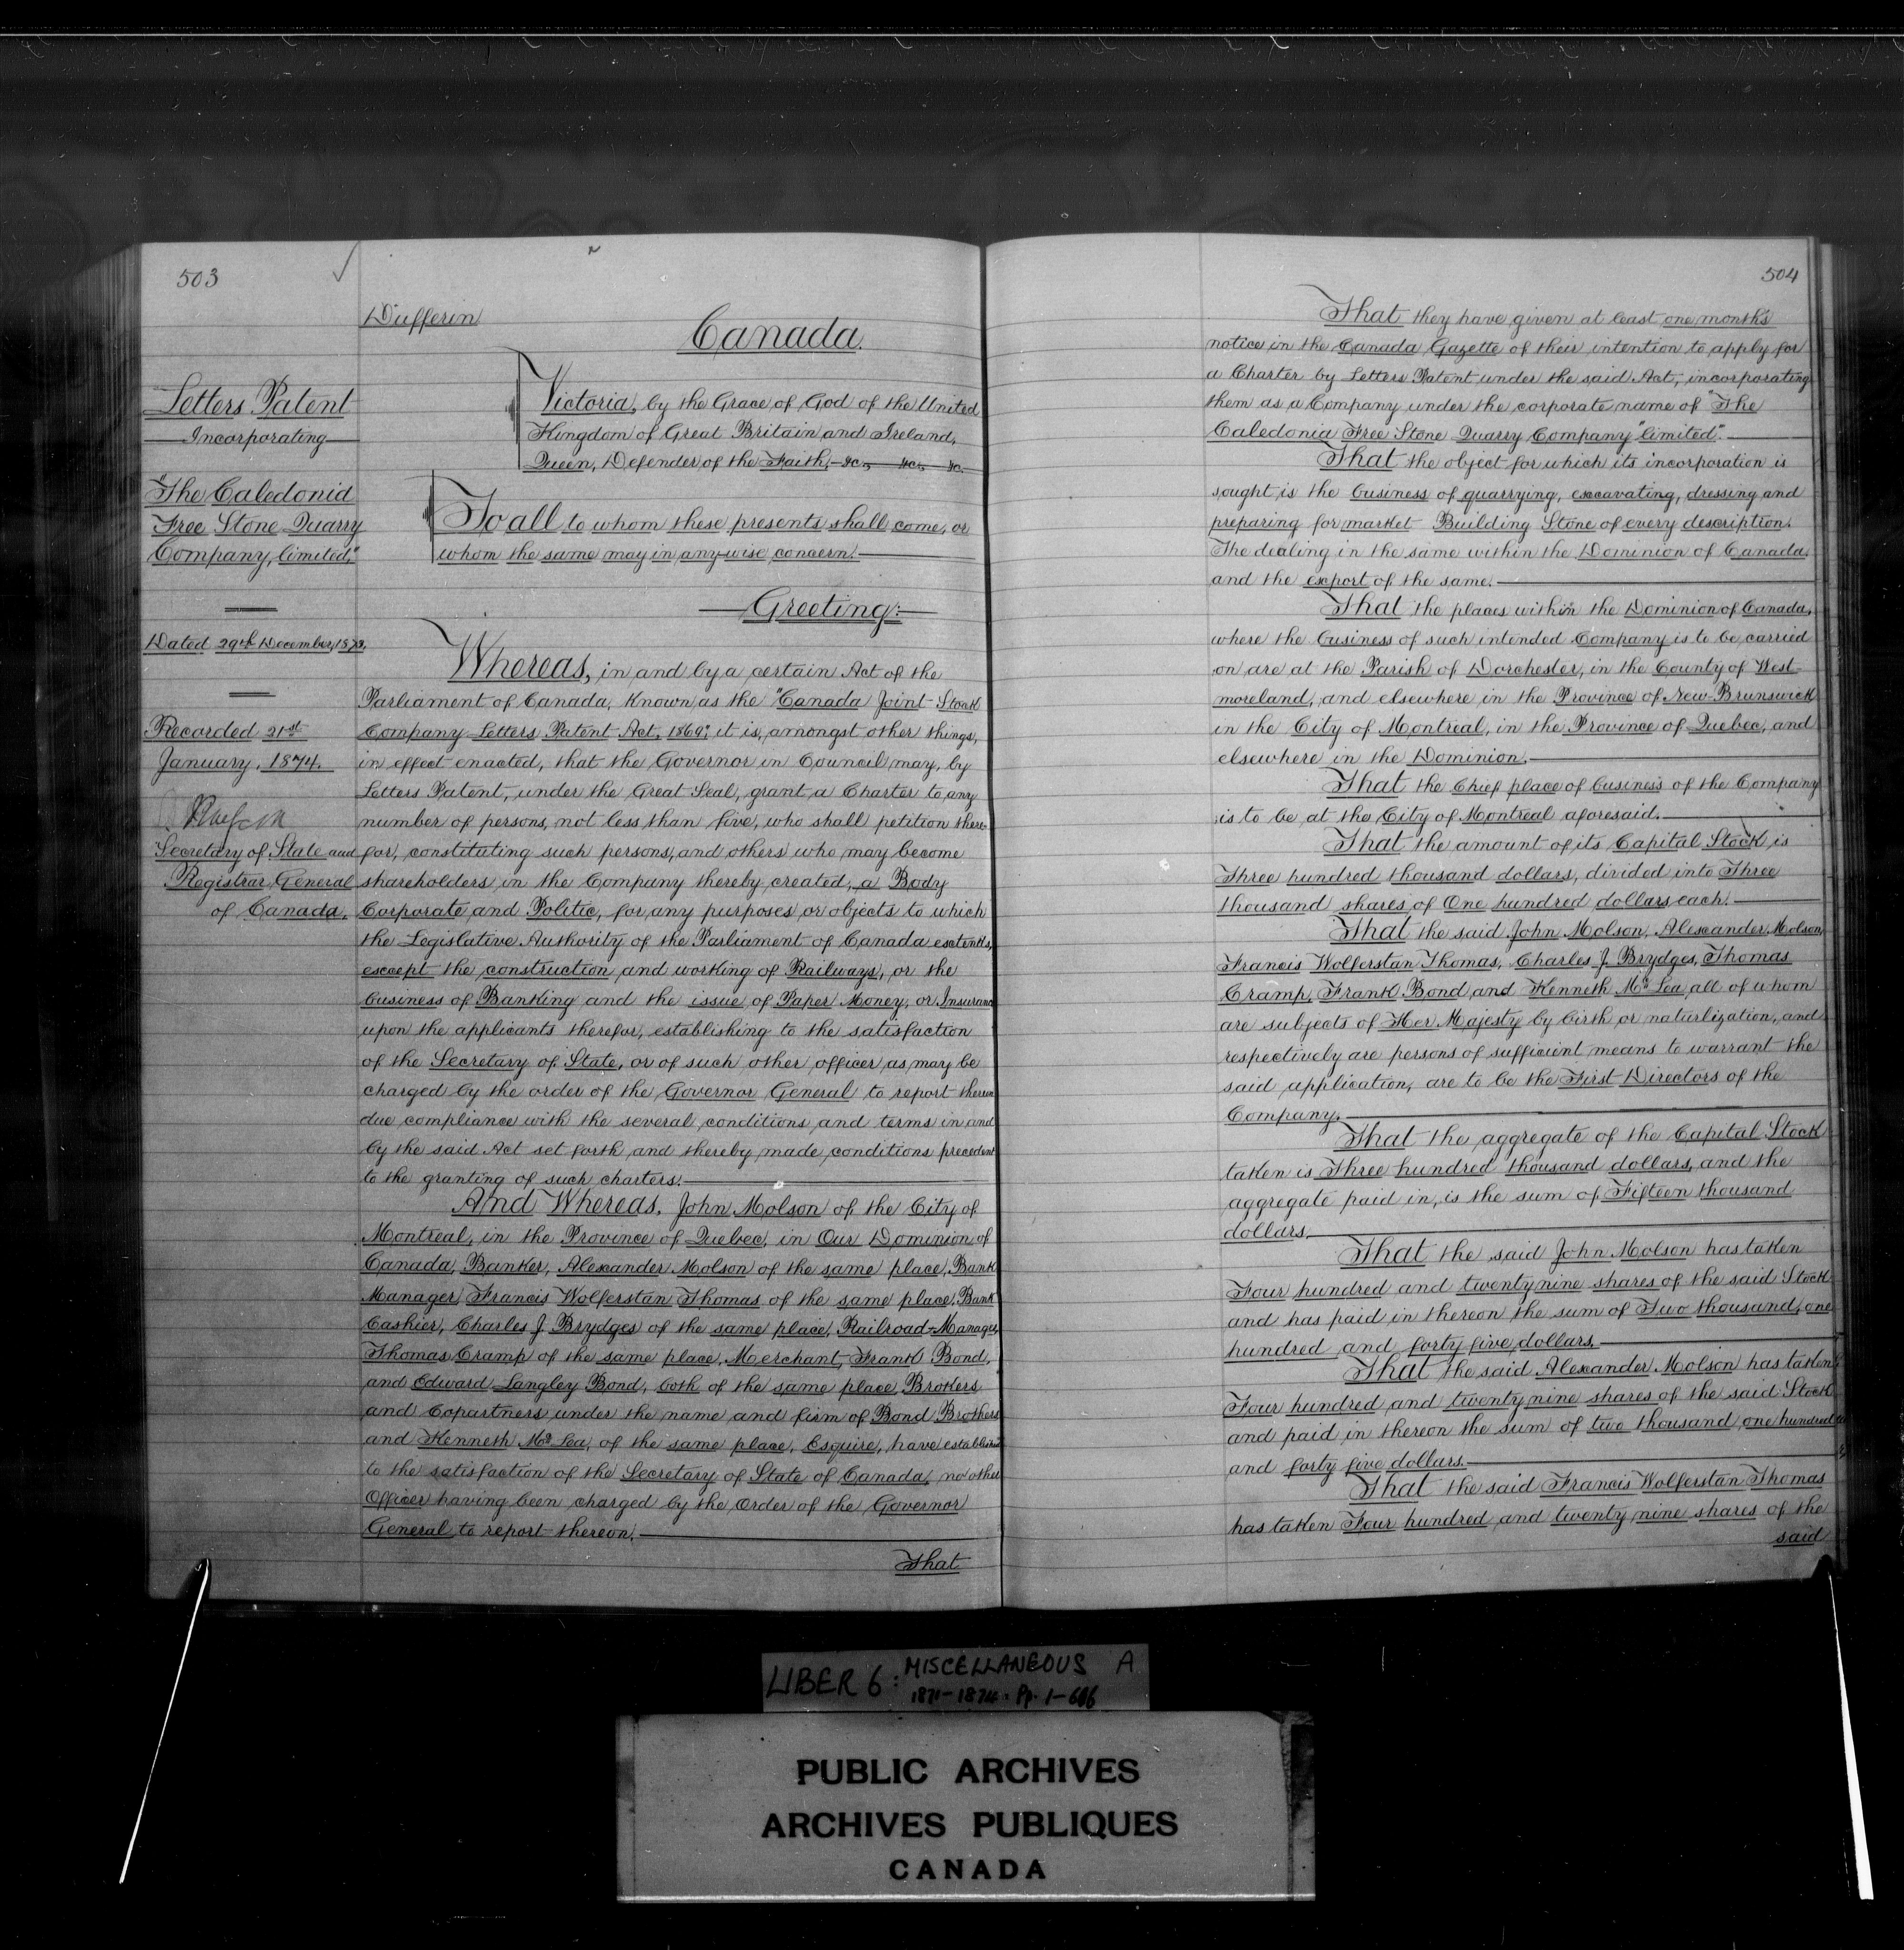 503
Dufferin
Canada.
Letters Patent
Incorporating
"The Caledonia
Free Stone Quarry
Company, limited."
Dated 29th December, 1873.
Recorded 21st
January, 1874.
Secretary of State and
Registrar General
of Canada.
Victoria, by the Grace of God of the United
Kingdom of Great Britain and Ireland,
Queen, Defender of the Faith, &c., &c., &c.
To all to whom these presents shall come, or
whom the same may in any-wise concern.
Greeting:
Whereas, in and by a certain Act of the
Parliament of Canada, known as the "Canada Joint-Stock
Company Letters Patent Act, 1869," it is, amongst other things,
in effect enacted, that the Governor in Council may, by
Letters Patent, under the Great Seal, grant a Charter to any
number of persons, not less than five, who shall petition there-
for, constituting such persons, and others who may become
shareholders in the Company thereby created, a Body
Corporate and Politic, for any purposes or objects to which
the Legislative Authority of the Parliament of Canada extends,
except the construction and working of Railways, or the
business of Banking and the issue of Paper Money, or Insurance
upon the applicants therefor, establishing to the satisfaction
of the Secretary of State, or of such other officer as may be
charged by the order of the Governor General to report thereon
due compliance with the several conditions and terms in and
by the said Act set forth and thereby made conditions precedent
to the granting of such charters.
And Whereas, John Molson of the City of
Montreal, in the Province of Quebec, in Our Dominion of
Canada, Banker, Alexander Molson of the same place, Bank
Manager, Francis Wolferstan Thomas of the same place, Bank
Cashier, Charles J. Brydges of the same place, Railroad-Manager,
Thomas Cramp of the same place, Merchant, Frank Bond,
and Edward Langley Bond, both of the same place, Brokers
and Copartners under the name and firm of Bond Brothers
and Kenneth Mc Lea, of the same place, Esquire, have established
to the satisfaction of the Secretary of State of Canada, no other
Officer having been charged by the Order of the Governor
General to report thereon.
That
504
That they have given at least one month's
notice in the Canada Gazette of their intention to apply for
a Charter by Letters Patent under the said Act, incorporating
them as a Company under the corporate name of "The
Caledonia Free Stone Quarry Company "limited".
That the object for which its incorporation is
sought, is the business of quarrying, excavating, dressing and
preparing for market Building Stone of every description.
The dealing in the same within the Dominion of Canada,
and the export of the same.
That the places within the Dominion of Canada,
where the business of such intended Company is to be carried
on are at the Parish of Dorchester, in the County of West-
moreland, and elsewhere in the Province of New-Brunswick
in the City of Montreal, in the Province of Quebec, and
elsewhere in the Dominion.
That the Chief place of business of the Company
is to be at the City of Montreal aforesaid.
That the amount of its Capital Stock is
Three hundred thousand dollars, divided into Three
thousand shares of One hundred dollars each.
That the said John Molson, Alexander Molson,
Francis Wolferstan Thomas, Charles J. Brydges, Thomas
Cramp, Frank Bond and Kenneth Mc Lea, all of whom
are subjects of Her Majesty by birth or naturlization, and
respectively are persons of sufficient means to warrant the
said application, are to be the First Directors of the
Company.
That the aggregate of the Capital Stock
taken is Three hundred thousand dollars, and the
aggregate paid in, is the sum of Fifteen thousand
dollars.
That the said John Molson has taken
Four hundred and twenty nine shares of the said Stock
and has paid in thereon the sum of Two thousand, one
hundred and forty five dollars.
That the said Alexander Molson has taken
Four hundred and twenty nine shares of the said Stock
and paid in thereon the sum of two thousand, one hundred
and forty five dollars.
That the said Francis Wolferstan Thomas
has taken Four hundred and twenty nine shares of the
said
LIBER 6: MISCELLANEOUS A
1871-1874. Pp. 1-606
PUBLIC ARCHIVES
ARCHIVES PUBLIQUES
CANADA